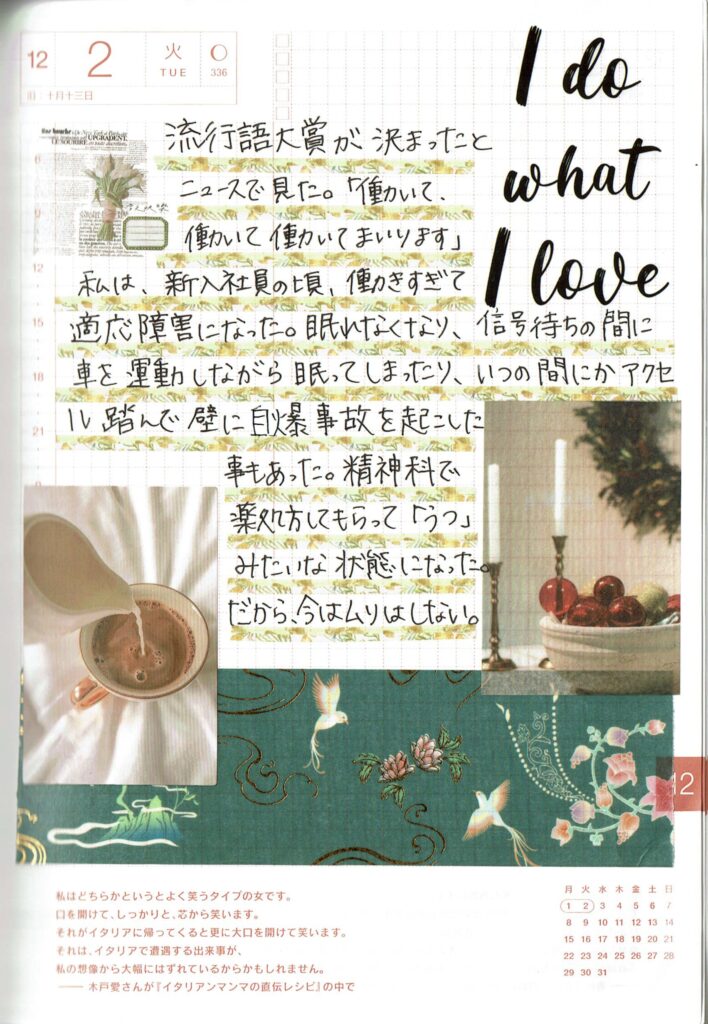 12
2
火
TUE
336
旧:十月十三日
I do
what
I love
UPGRADENT.
LE SOURIRE
流行語大賞が決まったと
ニュースで見た。「働いて、
働いて働いてまいります」
私は、新入社員の頃、働きすぎて
適応障害になった。眠れなくなり、信号待ちの間に
車を運動しながら眠ってしまったり、いつの間にかアクセ
ル踏んで壁に自爆事故を起こした
事もあった。精神科で
薬処方してもらって「うつ」
みたいな状態になった。
だから、今はムリはしない。
6
9
12
15
18
21
12
私はどちらかというとよく笑うタイプの女です。
口を開けて、しっかりと、芯から笑います。
それがイタリアに帰ってくると更に大口を開けて笑います。
それは、イタリアで遭遇する出来事が、
私の想像から大幅にはずれているからかもしれません。
―― 木戸愛さんが『イタリアンマンマの直伝レシピ』の中で
月 火 水 木 金 土 日
1 2 3 4 5 6 7
8 9 10 11 12 13 14
15 16 17 18 19 20 21
22 23 24 25 26 27 28
29 30 31